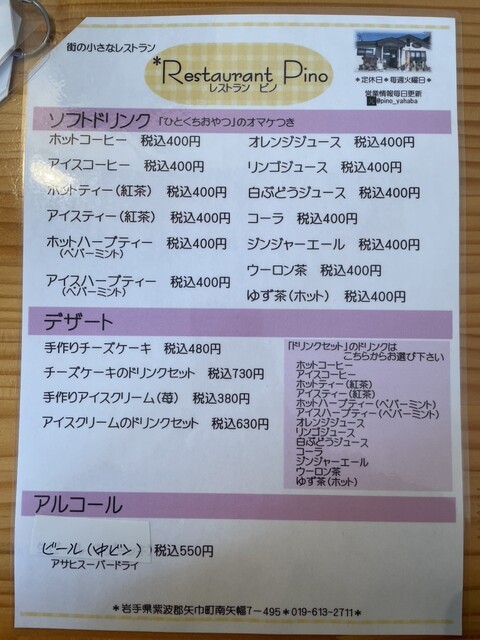 街の小さなレストラン
*Restaurant Pino
レストラン ピノ
*定休日*毎週火曜日*
営業情報毎日更新
@pino_yahaba
ソフトドリンク 「ひとくちおやつ」のオマケつき
ホットコーヒー 税込400円
アイスコーヒー 税込400円
ホットティー(紅茶) 税込400円
アイスティー(紅茶) 税込400円
ホットハーブティー 税込400円
(ペパーミント)
アイスハーブティー 税込400円
(ペパーミント)
オレンジジュース 税込400円
リンゴジュース 税込400円
白ぶどうジュース 税込400円
コーラ 税込400円
ジンジャーエール 税込400円
ウーロン茶 税込400円
ゆず茶(ホット) 税込400円
デザート
手作りチーズケーキ 税込480円
チーズケーキのドリンクセット 税込730円
手作りアイスクリーム(苺) 税込380円
アイスクリームのドリンクセット 税込630円
「ドリンクセット」のドリンクは
こちらからお選び下さい
ホットコーヒー
アイスコーヒー
ホットティー(紅茶)
アイスティー(紅茶)
ホットハーブティー(ペパーミント)
アイスハーブティー(ペパーミント)
オレンジジュース
リンゴジュース
白ぶどうジュース
コーラ
ジンジャーエール
ウーロン茶
ゆず茶(ホット)
アルコール
ビール(中ビン) 税込550円
アサヒスーパードライ
*岩手県紫波郡矢巾町南矢幅7-495*019-613-2711*